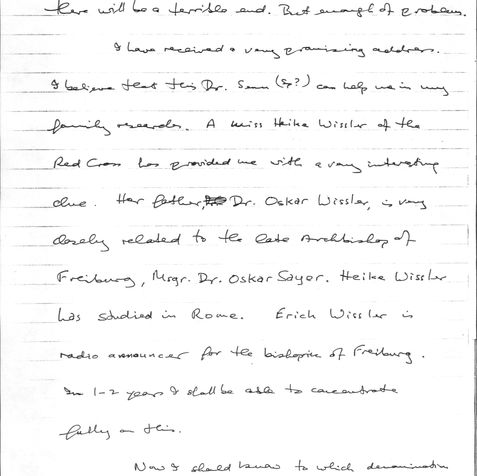 there will be a terrible end. But enough of problems.
I have received a very promising address.
I believe that this Dr. Senn (Sp?) can help me in my
family research. A Miss Heike Wissler of the
Red Cross has provided me with a very interesting
clue. Her father, Dr. Oskar Wissler, is very
closely related to the late Archbishop of
Freiburg, Msgr. Dr. Oskar Sayer. Heike Wissler
has studied in Rome. Erich Wissler is
radio announcer for the bishopric of Freiburg.
In 1-2 years I shall be able to concentrate
fully on this.
Now I should know to which denomination